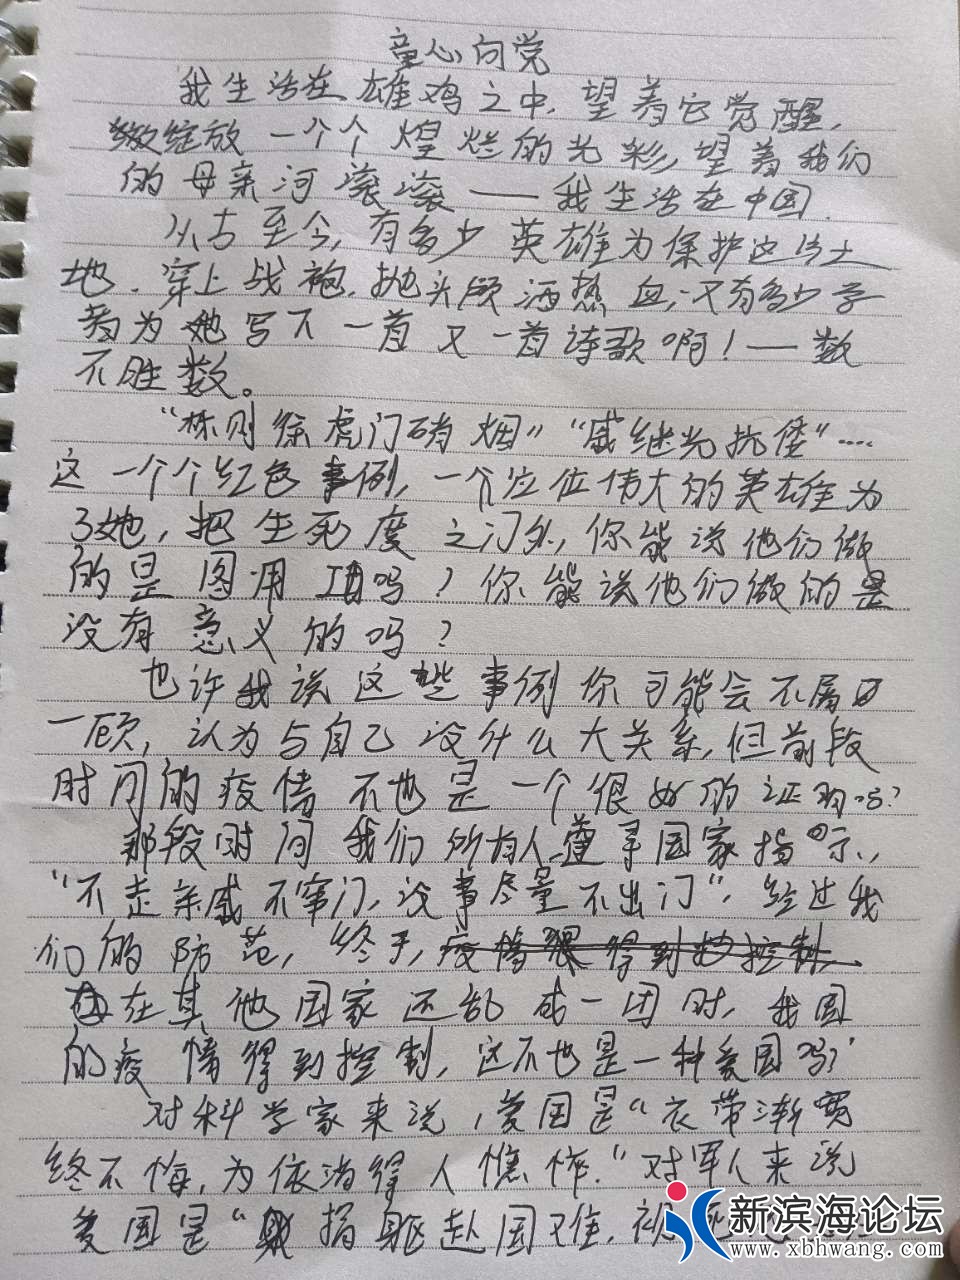 童心向党
我生活在雄鸡之中,望着它觉醒,
绽放一个个煌烂的光彩,望着我们
的母亲河滚滚——我生活在中国.
从古至今,有多少英雄为保护这片土
地.穿上战袍,抛头颅洒热血,又有多少学
者为她写下一首又一首诗歌啊!——数
不胜数。
“林则徐虎门硝烟”“戚继光抗倭”....
这一个个红色事例,一个位位伟大的英雄为
了她,把生死度之门外,你能说他们做
的是图用工吗?你能说他们做的是
没有意义的吗?
也许我说这些事例你可能会不屑
一顾,认为与自己没什么大关系,但前段
时间的疫情不也是一个很好的证明吗?
那段时间我们所有人遵寻国家指示,
“不走亲戚不窜门,没事尽量不出门”.经过我
们的防范,终于,疫情得到控制
在其他国家还乱成一团时,我国
的疫情得到控制,这不也是一种爱国吗?
对科学家来说,爱国是“衣带渐宽
终不悔,为依消得人憔悴.”对军人来说
爱国是“捐躯赴国难,视死
新滨海论坛
www.xbhwang.com